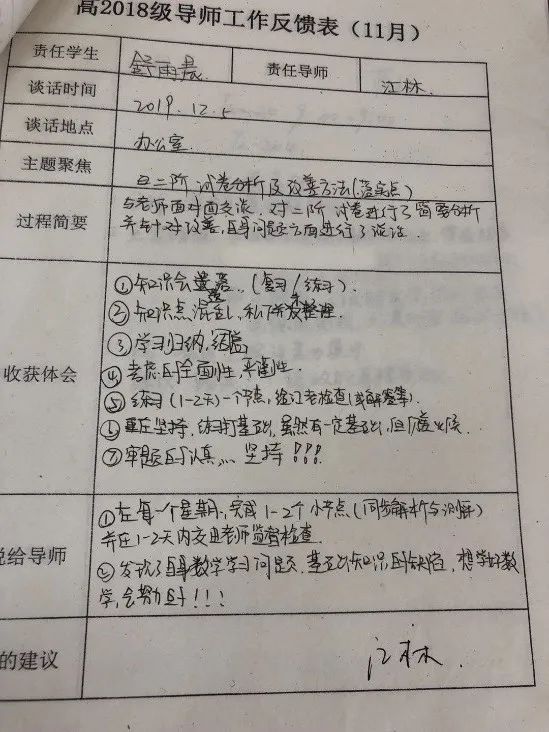 高2018级导师工作反馈表（11月）
责任学生 舒雨晨 责任导师 江林.
谈话时间 2019.12.5
谈话地点 办公室.
主题聚焦 二阶试卷分析及改善方法(落实点)
过程简要 与老师面对面交谈，对二阶试卷进行了简要分析
并针对改善,自身问题方面进行了谈话.
收获体会
①知识会 (复习/练习).
②知识点混乱,私下 整理.
③学习归纳,总结
④考虑的全面性,平衡性.
⑤练习(1-2天)一个节点,给江老检查(或解答等).
⑥重在坚持,练习打基础,虽然有一定基础,但
⑦审题的认真... 坚持!!!
说给导师
①在每一个星期,完成1-2个小节点(同步解析与测评)
并在1-2天内交由老师监督检查.
②发现了自身数学学习问题,基础知识的缺陷,想学好数
学,会努力的!!!
的建议 江林.